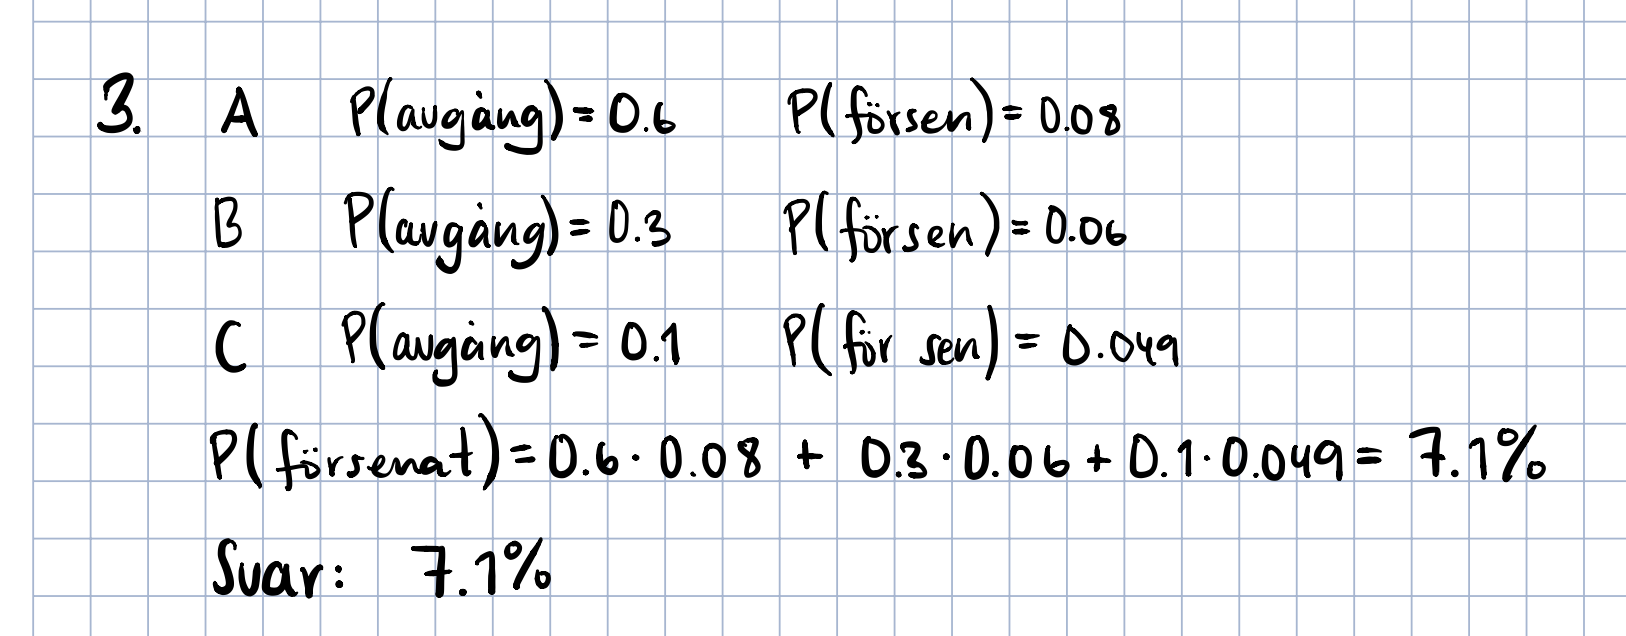 3. A P(avgång) = 0.6 P(försen) = 0.08
B P(avgång) = 0.3 P(försen) = 0.06
C P(avgång) = 0.1 P(för sen) = 0.049
P(försenat) = 0.6 · 0.08 + 0.3 · 0.06 + 0.1 · 0.049 = 7.1%
Svar: 7.1%